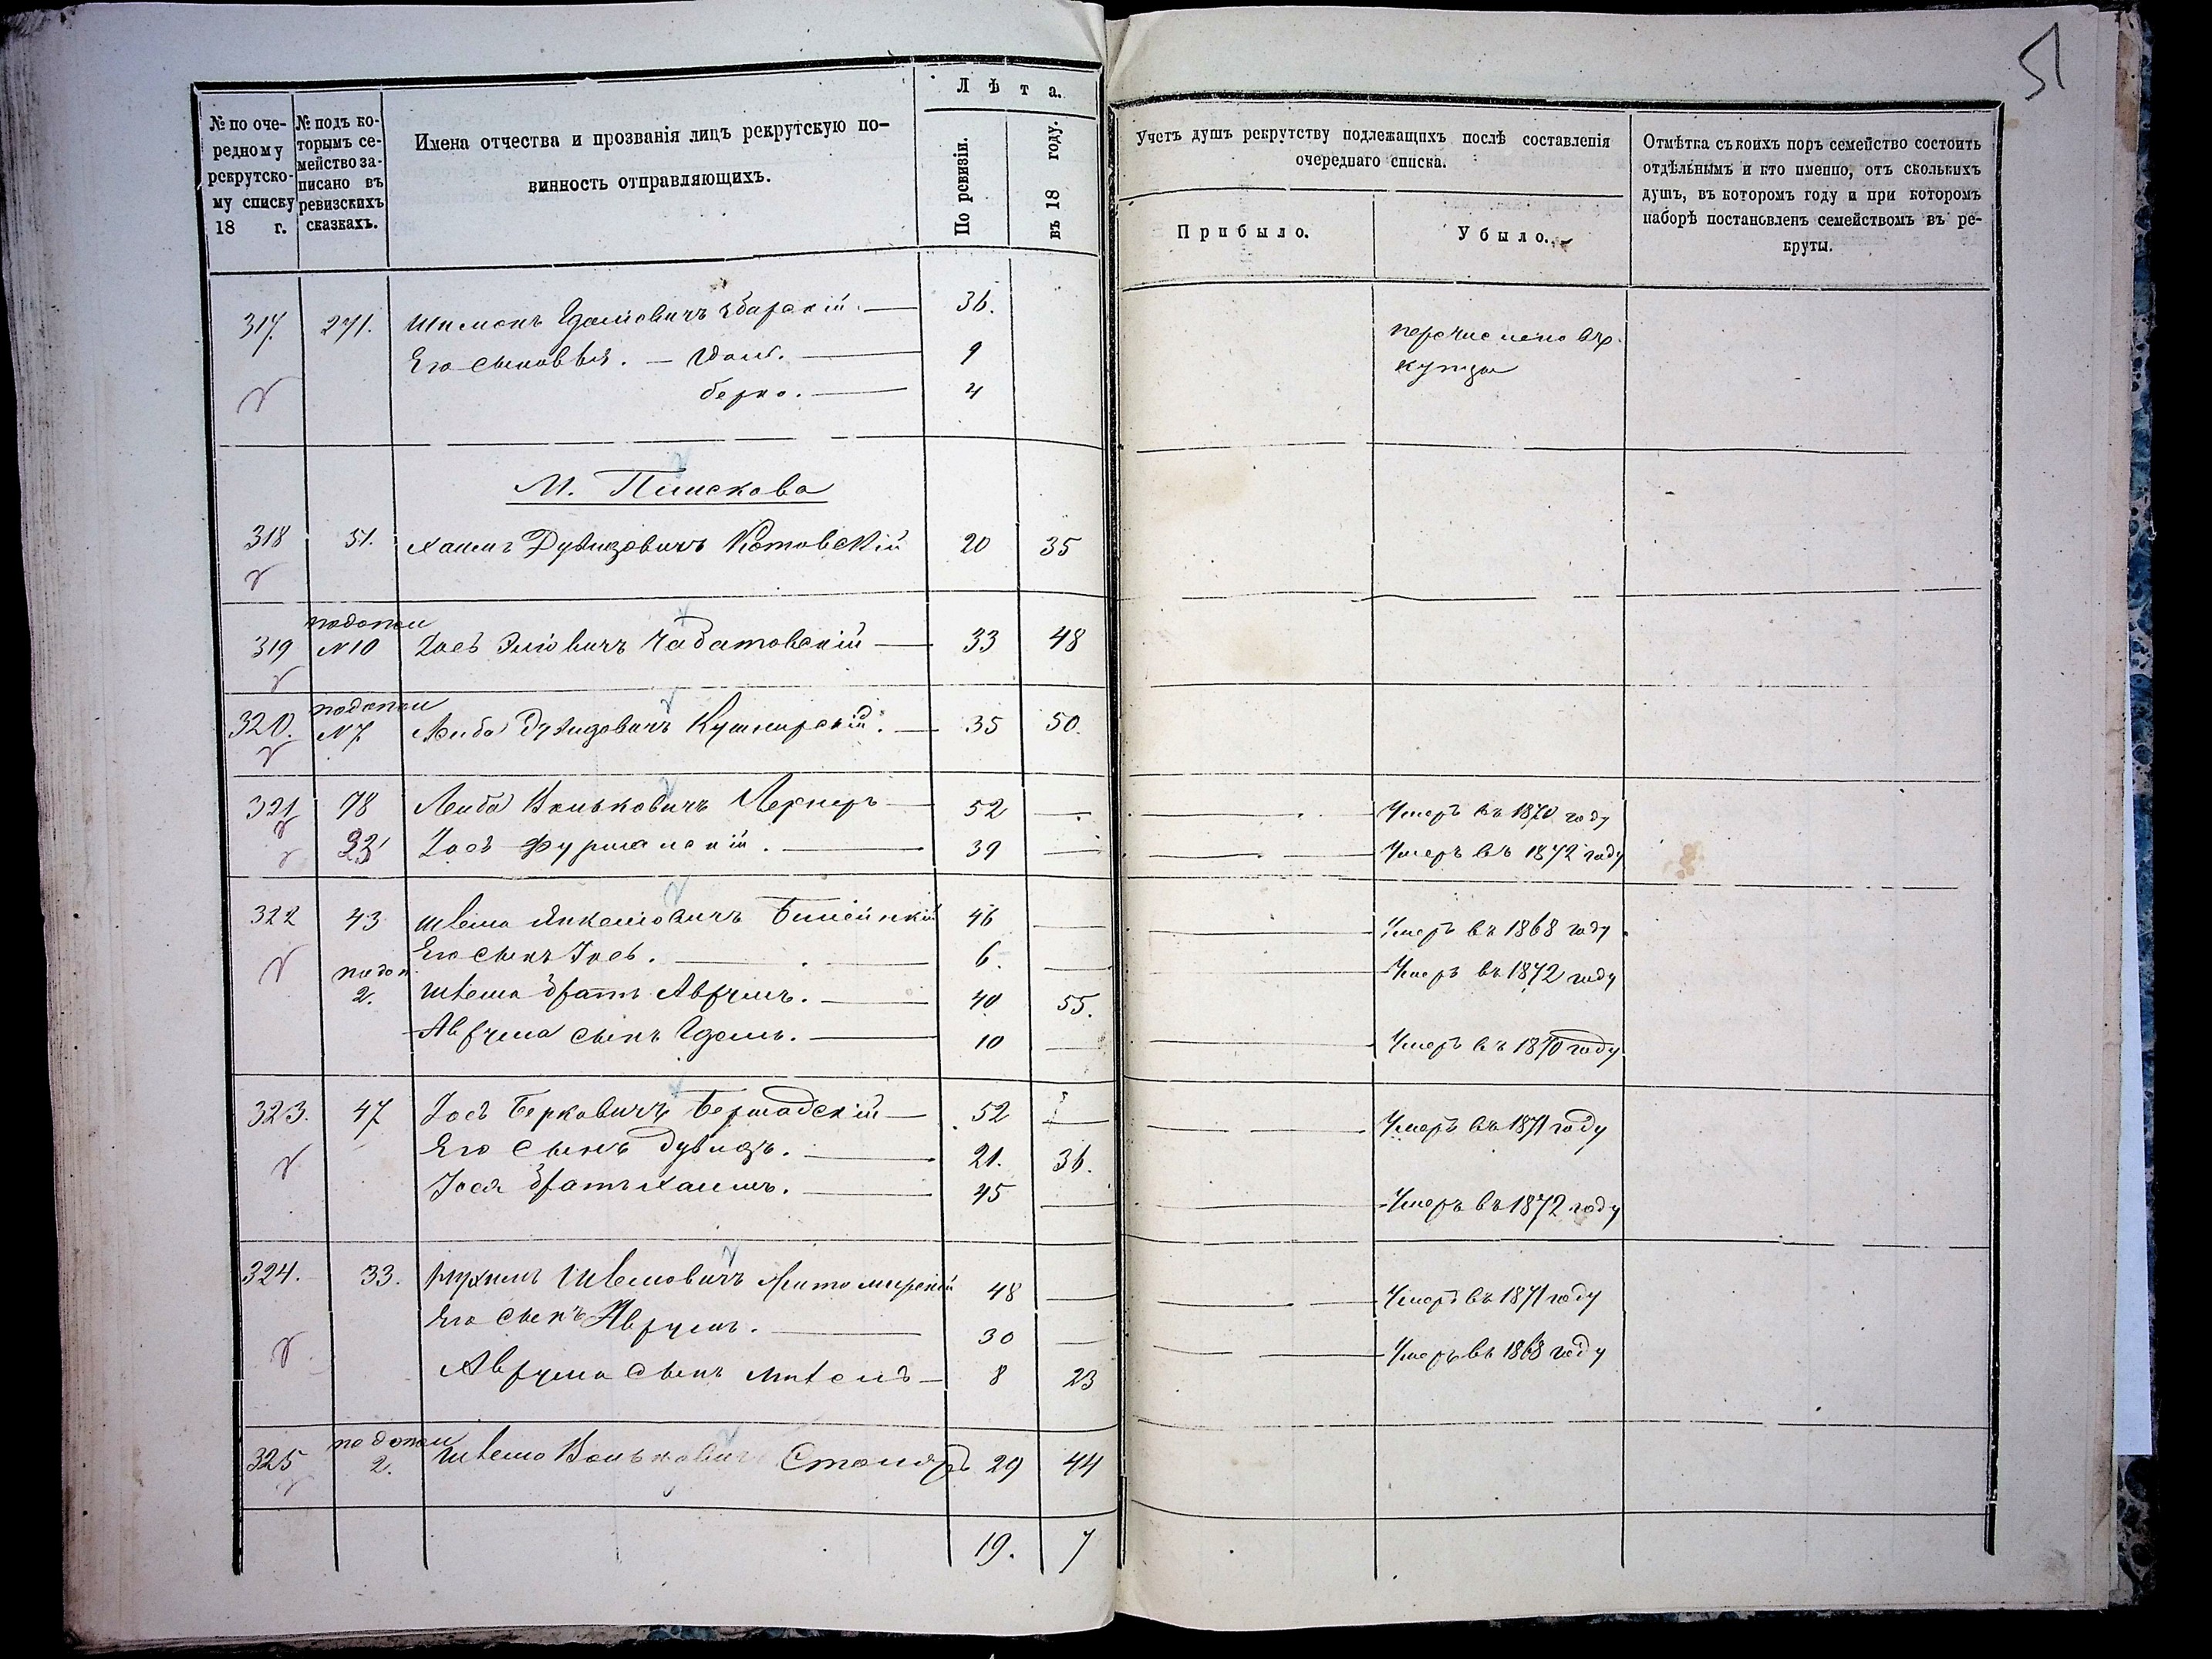 51
№ по оче-
редному
рекрутско-
му списку
18 г.
№ подъ ко-
торымъ се-
мейство за-
писано въ
ревизскихъ
сказкахъ.
Имена отчества и прозванія лицъ рекрутскую по-
винность отправляющихъ.
Лѣта.
По ревизіи.
въ 18 году.
Учетъ душъ рекрутству подлежащихъ послѣ составленія
очереднаго списка.
Прибыло.
Убыло.
Отмѣтка съ коихъ поръ семейство состоитъ
отдѣльнымъ и кто именно, отъ сколькихъ
душъ, въ которомъ году и при которомъ
наборѣ постановленъ семействомъ въ ре-
круты.
317. 271. Шимонъ Збарскій. 36. перечислено въ
Его сыновья. — 9 купцы
берко. 4
М. Пискова
318 51. Хаимъ Дувидовичъ Котовскій 20 35
319 по допол №10 Іось Эліовичъ Чабатовскій 33 48
320. по допол №7 Лейба Дувидовичъ Кушнирскій. 35 50.
321 78 Лейба Вольковичъ Лернеръ 52 — Умеръ въ 1870 году
Іось Фурманскій. 39 — Умеръ въ 1872 году
322 43 Шлема Янкелювичъ 46 — Умеръ въ 1868 году.
Его сынъ Іось. 6. — Умеръ въ 1872 году
по доп. 2. Шлема братъ Аврумъ. 40 55.
Аврума сынъ Идель. 10 — Умеръ въ 1870 году
323. 47 Іось Берковичъ Бершадскій 52 — Умеръ въ 1871 году
Его сынъ Дувидъ. 21. 36.
Іося братъ Хаимъ. 45 — Умеръ въ 1872 году
324. 33. Шлемовичъ Житомирскій 48 — Умеръ въ 1871 году
Его сынъ Аврумъ. 30 — Умеръ въ 1868 году
Аврума сынъ 8 23
325 по допол 2. Шлема Волькович Столяръ 29 44
19. 7